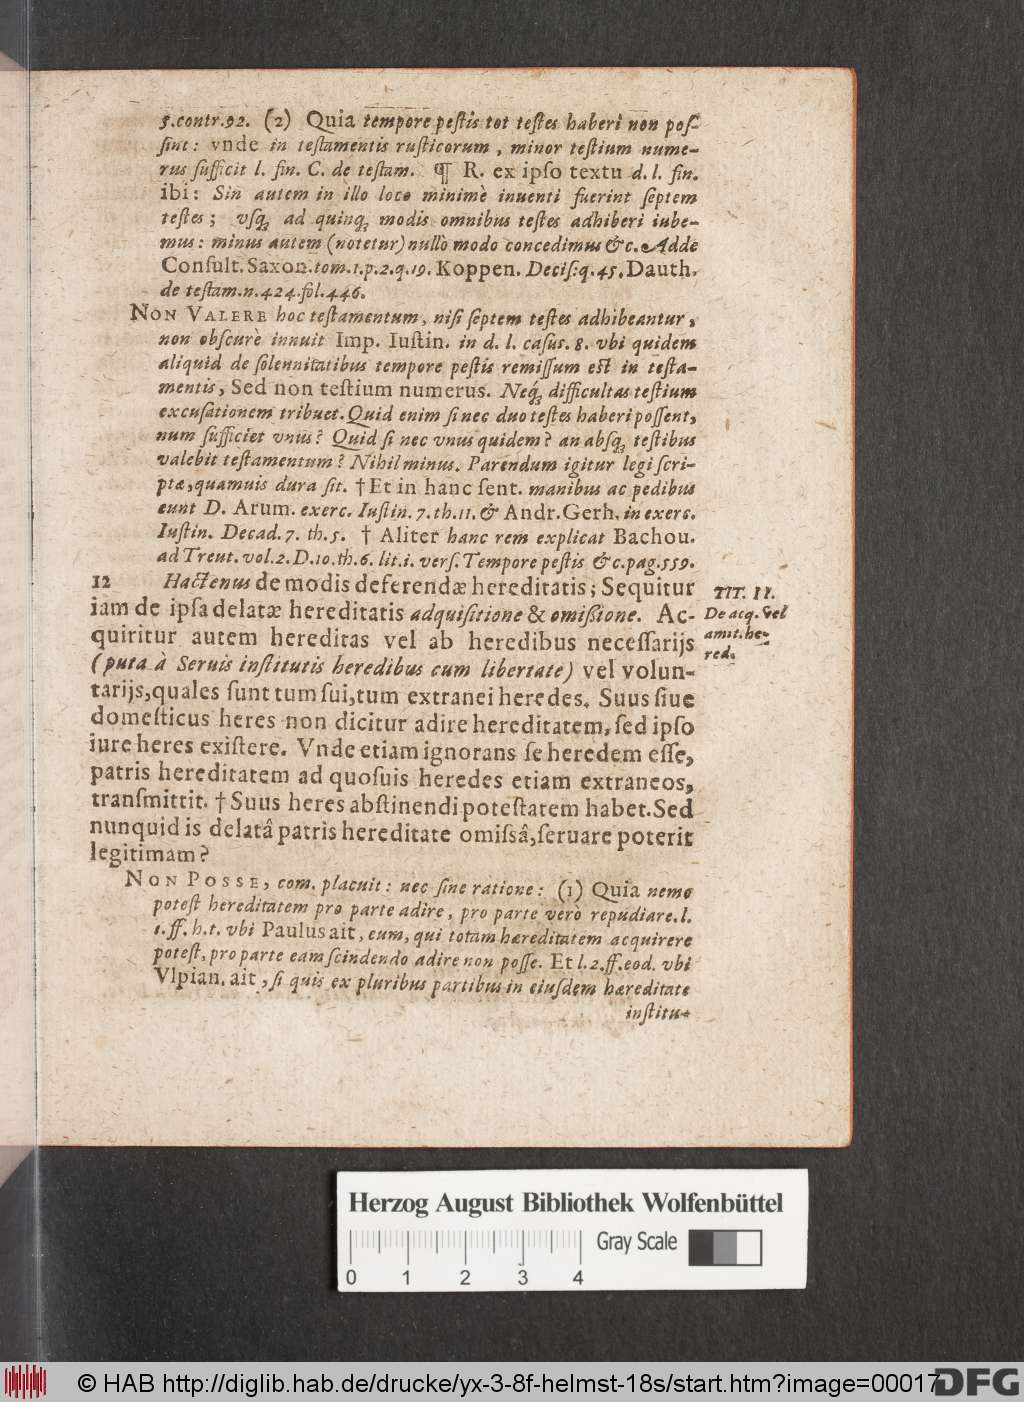 5.contr.92. (2) Quia tempore peſtis tot teſtes haberi non poſ-
ſint: vnde in teſtamentis ruſticorum, minor teſtium nume-
rus ſufficit l. fin. C. de teſtam. ¶ R. ex ipſo textu d. l. fin.
ibi: Sin autem in illo loco minimè inuenti fuerint ſeptem
teſtes; vſq; ad quinq; modis omnibus teſtes adhiberi iube-
mus: minus autem (notetur) nullò modo concedimus &c. Adde
Conſult. Saxon. tom. 1. p. 2. q. 19. Koppen. Deciſ: q. 45. Dauth.
de teſtam. n. 424. fol. 446.
NON VALERE hoc teſtamentum, niſi ſeptem teſtes adhibeantur,
non obſcurè innuit Imp. Iuſtin. in d. l. caſus. 8. vbi quidem
aliquid de ſolennitatibus tempore peſtis remiſſum eſt in teſta-
mentis, Sed non teſtium numerus. Neq́; difficultas teſtium
excuſationem tribuet. Quid enim ſi nec duo teſtes haberi poſſent,
num ſufficiet vnus? Quid ſi nec vnus quidem? an abſq; teſtibus
valebit teſtamentum? Nihil minus. Parendum igitur legi ſcri-
ptæ, quamuis dura ſit. † Et in hanc ſent. manibus ac pedibus
eunt D. Arum. exerc. Iuſtin. 7. th. 11. & Andr. Gerh. in exerc.
Iuſtin. Decad. 7. th. 5. † Aliter hanc rem explicat Bachou.
ad Treut. vol. 2. D. 10. th. 6. lit. i. verſ. Tempore peſtis &c. pag. 559.
12 Hactenus de modis deferendæ hereditatis; Sequitur
iam de ipſa delatæ hereditatis adquiſitione & omiſſione. Ac-
quiritur autem hereditas vel ab heredibus neceſſarijs
(puta à Seruis inſtitutis heredibus cum libertate) vel volun-
tarijs, quales ſunt tum ſui, tum extranei heredes. Suus ſiue
domeſticus heres non dicitur adire hereditatem, ſed ipſo
iure heres exiſtere. Vnde etiam ignorans ſe heredem eſſe,
patris hereditatem ad quoſuis heredes etiam extraneos,
tranſmittit. † Suus heres abſtinendi poteſtatem habet. Sed
nunquid is delatâ patris hereditate omiſsâ, ſeruare poterit
legitimam?
TIT. II.
De acq. vel
amit. he-
red.
NON POSSE, com. placuit: nec ſine ratione: (1) Quia nemo
poteſt hereditatem pro parte adire, pro parte verò repudiare. l.
1. ff. h. t. vbi Paulus ait, eum, qui totam hæreditatem acquirere
poteſt, pro parte eam ſcindendo adire non poſſe. Et l. 2. ff. eod. vbi
Vlpian. ait, ſi quis ex pluribus partibus in eiuſdem hæreditate
inſtitu-
Herzog August Bibliothek Wolfenbüttel
Gray Scale
0 1 2 3 4
© HAB http://diglib.hab.de/drucke/yx-3-8f-helmst-18s/start.htm?image=00017
DFG